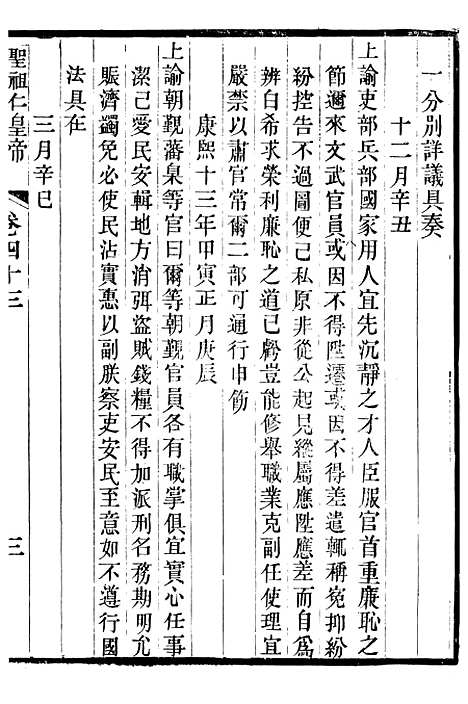 一分別詳議具奏
十二月辛丑
上諭吏部兵部國家用人宜先沉靜之才人臣服官首重廉恥之
節邇來文武官員或因不得陞遷或因不得差遣輒稱寃抑紛
紛控告不過圖便己私原非從公起見縱屬應陞應差而自爲
辨白希求榮利廉恥之道已虧豈能修舉職業克副任使理宜
嚴禁以肅官常爾二部可通行申飭
康熙十三年甲寅正月庚辰
上諭朝覲藩臬等官曰爾等朝覲官員各有職掌俱宜實心任事
潔己愛民安輯地方消弭盜賊錢糧不得加派刑名務期明允
賑濟蠲免必使民沾實惠以副朕察吏安民至意如不遵行國
法具在
三月辛巳
聖祖仁皇帝 卷四十三 三